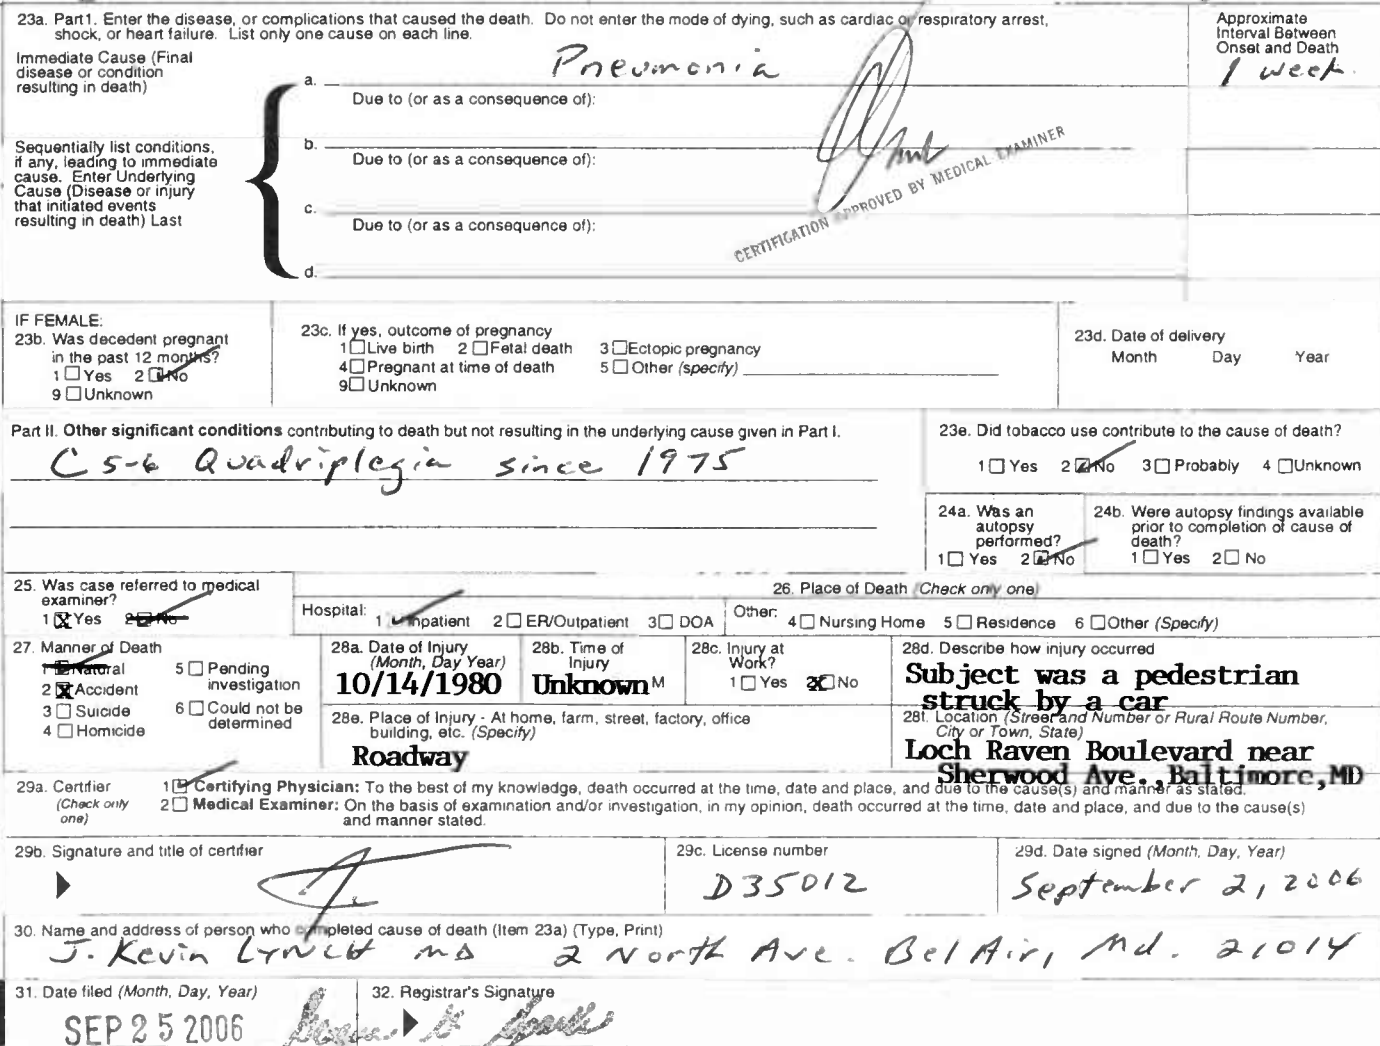 23a. Part1. Enter the disease, or complications that caused the death. Do not enter the mode of dying, such as cardiac or respiratory arrest,
shock, or heart failure. List only one cause on each line.
Approximate
Interval Between
Onset and Death
Immediate Cause (Final
disease or condition
resulting in death)
a. Pneumonia
1 week.
Due to (or as a consequence of):
Sequentially list conditions,
if any, leading to immediate
cause. Enter Underlying
Cause (Disease or injury
that initiated events
resulting in death) Last
b.
Due to (or as a consequence of):
c.
Due to (or as a consequence of):
d.
CERTIFICATION APPROVED BY MEDICAL EXAMINER
IF FEMALE:
23b. Was decedent pregnant
in the past 12 months?
1 ☐ Yes 2 ☑ No
9 ☐ Unknown
23c. If yes, outcome of pregnancy
1 ☐ Live birth 2 ☐ Fetal death 3 ☐ Ectopic pregnancy
4 ☐ Pregnant at time of death 5 ☐ Other (specify)
9 ☐ Unknown
23d. Date of delivery
Month Day Year
Part II. Other significant conditions contributing to death but not resulting in the underlying cause given in Part I.
C5-6 Quadriplegia since 1975
23e. Did tobacco use contribute to the cause of death?
1 ☐ Yes 2 ☑ No 3 ☐ Probably 4 ☐ Unknown
24a. Was an
autopsy
performed?
1 ☐ Yes 2 ☑ No
24b. Were autopsy findings available
prior to completion of cause of
death?
1 ☐ Yes 2 ☐ No
25. Was case referred to medical
examiner?
1 ☒ Yes 2 ☑ No
26. Place of Death (Check only one)
Hospital: 1 ☑ Inpatient 2 ☐ ER/Outpatient 3 ☐ DOA
Other: 4 ☐ Nursing Home 5 ☐ Residence 6 ☐ Other (Specify)
27. Manner of Death
1 ☑ Natural
2 ☒ Accident
3 ☐ Suicide
4 ☐ Homicide
5 ☐ Pending
investigation
6 ☐ Could not be
determined
28a. Date of Injury
(Month, Day Year)
10/14/1980
28b. Time of
Injury
Unknown M
28c. Injury at
Work?
1 ☐ Yes 2 ☒ No
28d. Describe how injury occurred
Subject was a pedestrian
struck by a car
28e. Place of Injury - At home, farm, street, factory, office
building, etc. (Specify)
Roadway
28f. Location (Street and Number or Rural Route Number,
City or Town, State)
Loch Raven Boulevard near
Sherwood Ave., Baltimore, MD
29a. Certifier
(Check only
one)
1 ☑ Certifying Physician: To the best of my knowledge, death occurred at the time, date and place, and due to the cause(s) and manner as stated.
2 ☐ Medical Examiner: On the basis of examination and/or investigation, in my opinion, death occurred at the time, date and place, and due to the cause(s)
and manner stated.
29b. Signature and title of certifier
29c. License number
D35012
29d. Date signed (Month, Day, Year)
September 2, 2006
30. Name and address of person who completed cause of death (Item 23a) (Type, Print)
J. Kevin LYNCH MD 2 North Ave. Bel Air, Md. 21014
31. Date filed (Month, Day, Year)
SEP 25 2006
32. Registrar's Signature